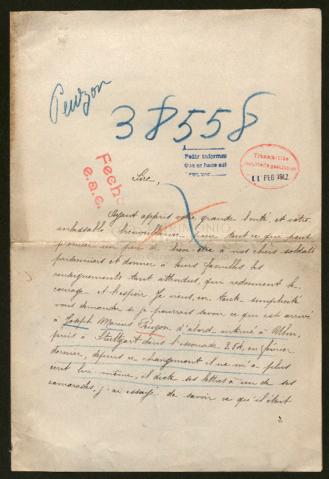 Peuzon
38558
Pedir informes
que se hace así
Fecha
e.a.c.
Transmitido
11 FEB 1917
Sire,
Ayant appris votre grande bonté et votre
inlassable bienveillance pour tout ce qui peut
procurer un peu de bien être à nos chers soldats
prisonniers et donner à leurs familles les
renseignements tant attendus, qui redonnent le
courage et l'espoir je viens, en toute simplicité
vous demander si je pourrais savoir ce qui est arrivé
à Joseph Marius d'abord interné à Ulm,
puis à Stuttgart dans l'escouade 254, en février
dernier, depuis ce changement il ne m'a plus
écrit lui même, il dicte ses lettres à un de ses
camarades, j'ai essayé de savoir ce qu'il était